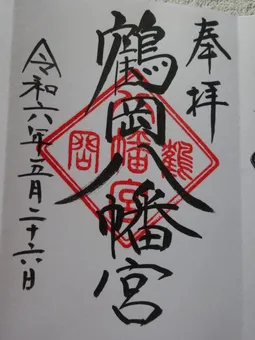 奉拝
鶴岡八幡宮
令和六年五月二十六日
鶴岡
八幡宮